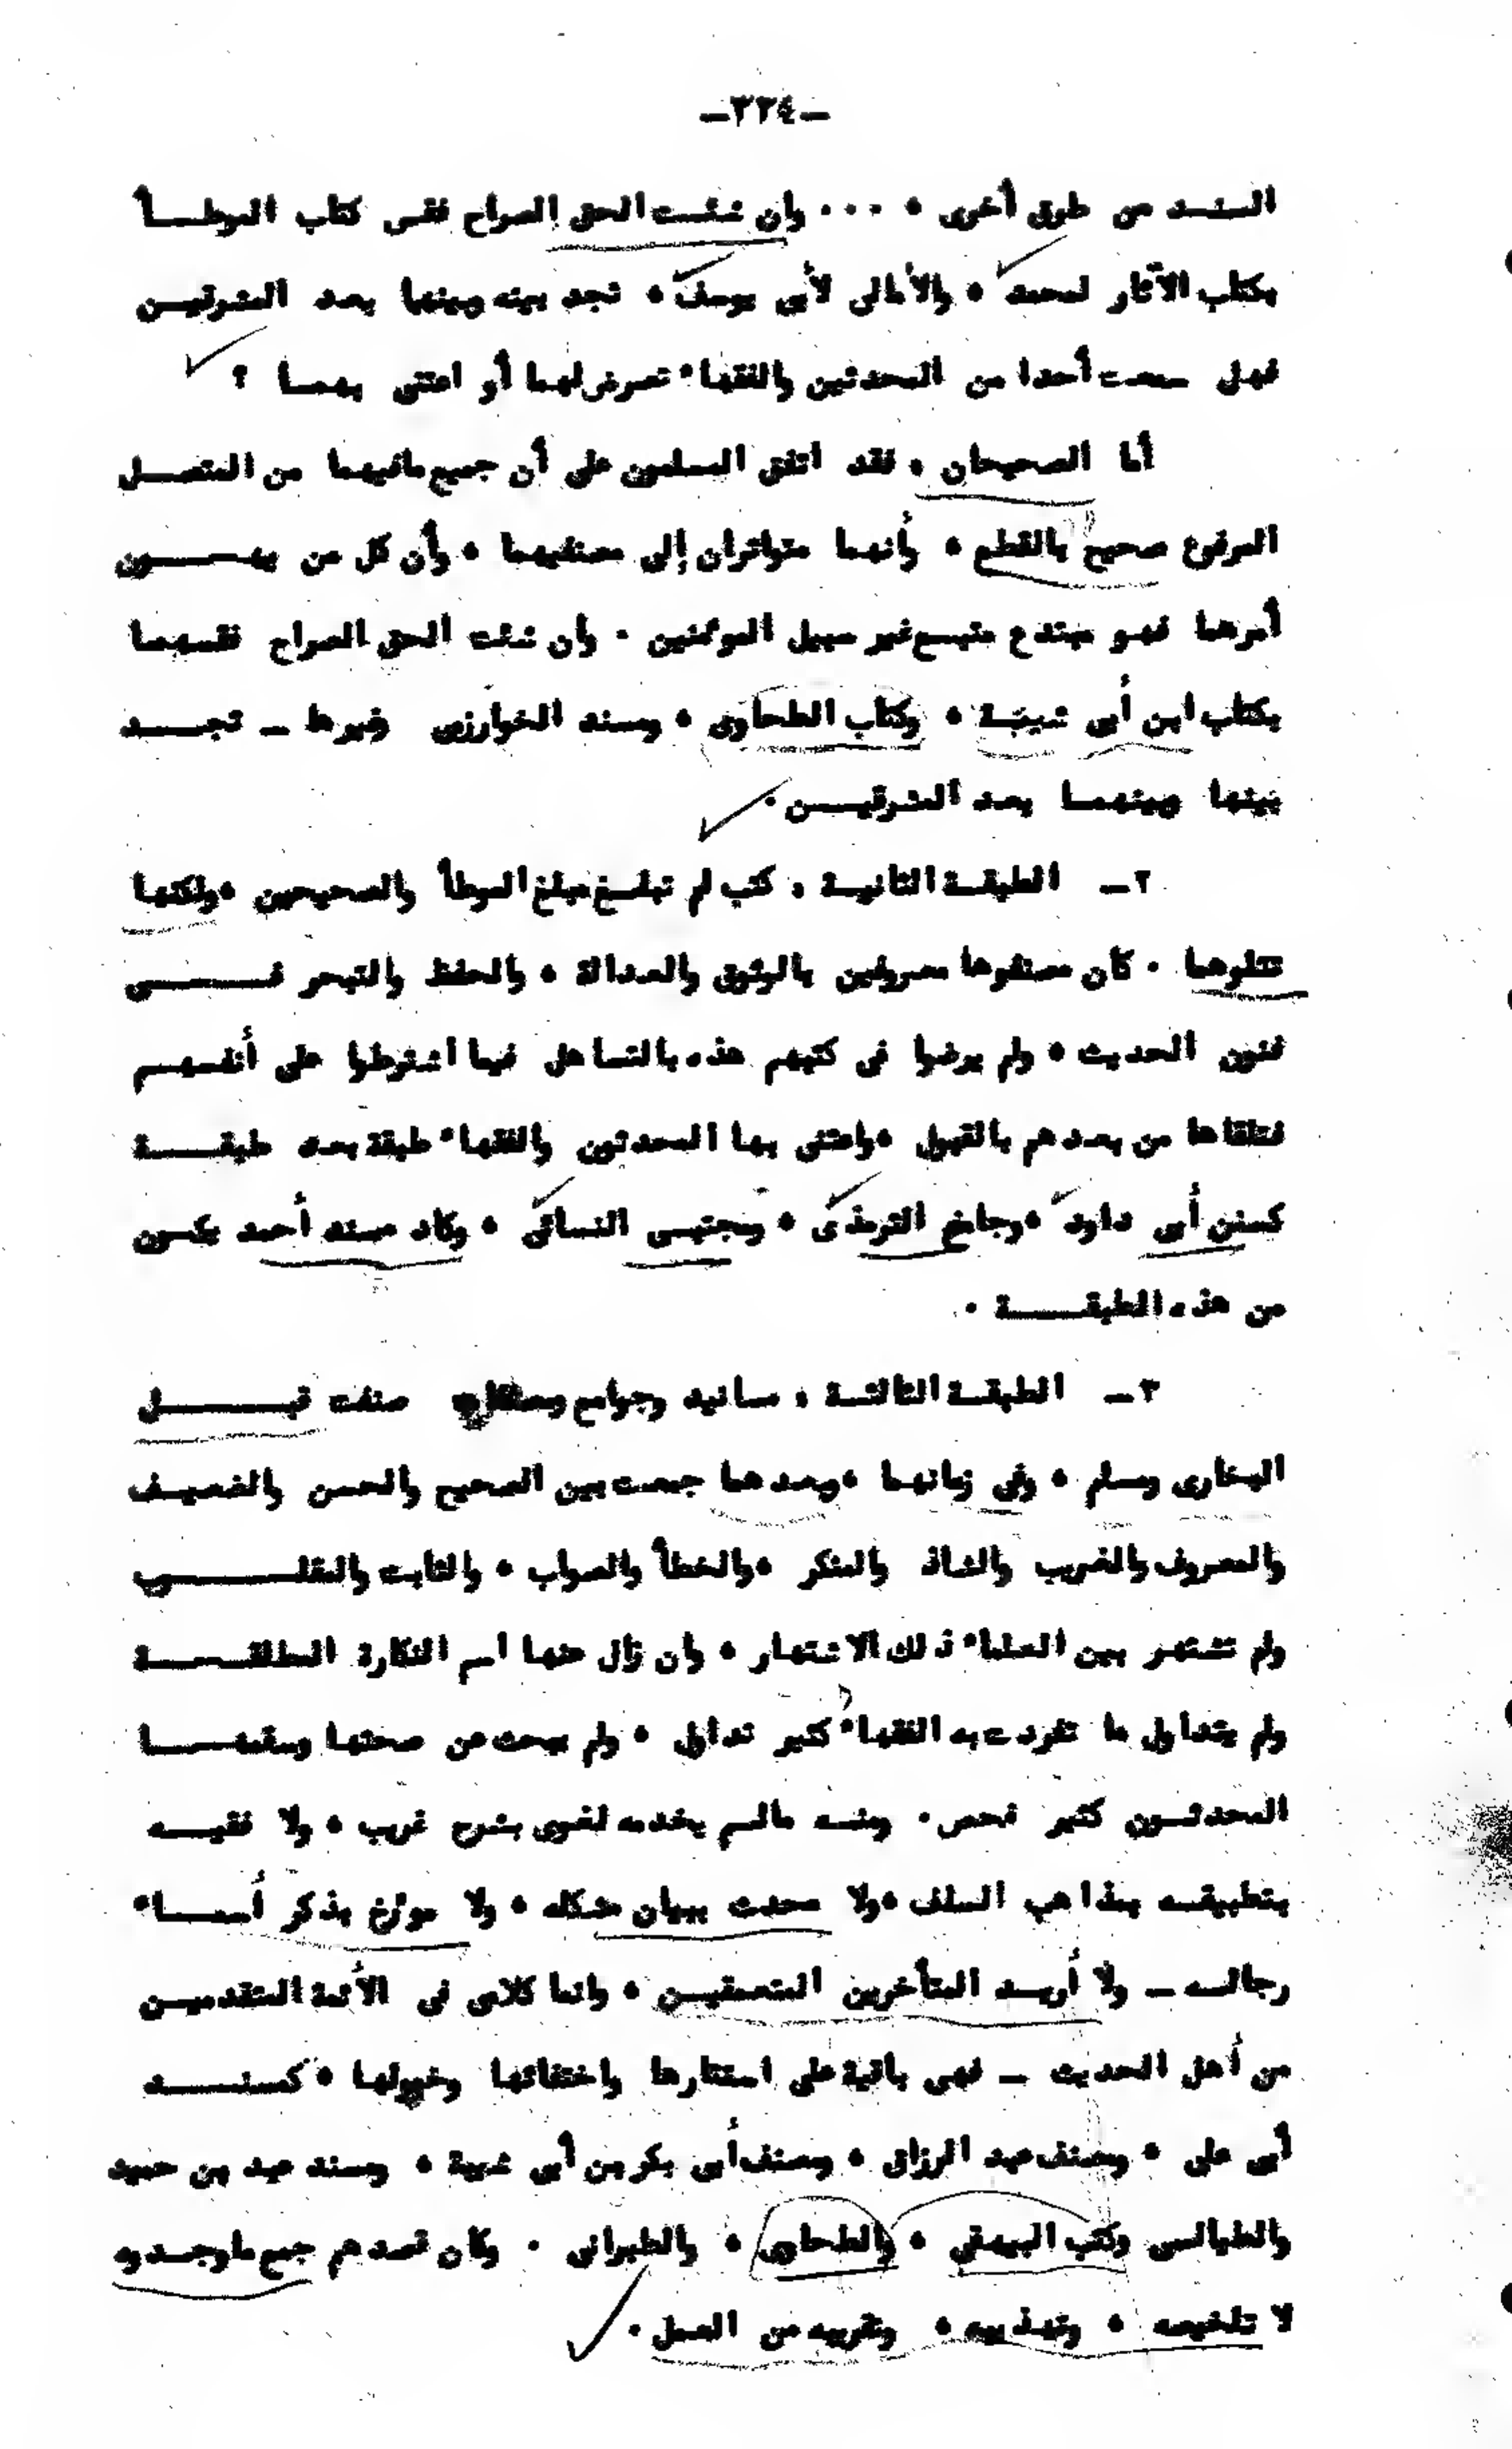 ـ٢٢٤ـ
السند من طرق أخرى ، ٠٠٠ وإن شئت الحق الصراح فقس كتاب الموطأ
بكتاب الآثار لمحمد ، والأمالى لأبى يوسف ، تجد بينه وبينهما بعد المشرقين
فهل سمعت أحدا من المحدثين والفقهاء تعرض لهما أو اعتنى بهما ؟
أما الصحيحان ، فقد اتفق المسلمون على أن جميع مافيهما من المتصل
المرفوع صحيح بالقطع ، وأنهما متواتران إلى مصنفيهما ، وأن كل من يهون
أمرهما فهو مبتدع متبع غير سبيل المؤمنين ٠ وان شئت الحق الصراح فقسهما
بكتاب ابن أبى شيبة ، وكتاب الطحاوى ، ومسند الخوارزمى وغيرها ـ تجد
بينها وبينهما بعد المشرقين ٠
٢ـ الطبقة الثانية ، كتب لم تبلغ مبلغ الموطأ والصحيحين ،ولكنها
تتلوهما ٠ كان مصنفوها معروفين بالوثوق والعدالة ، والحفظ والتبحر فى
فنون الحديث ، ولم يرضوا فى كتبهم هذه بالتساهل فيما اشترطوا على أنفسهم
فتلقاها من بعدهم بالقبول ،واعتنى بها المحدثون والفقهاء طبقة بعد طبقة
كسنن أبى داود ،وجامع الترمذى ، ومجتبى النسائى ، وكاد مسند أحمد يكون
من هذه الطبقة ٠
٣ـ الطبقة الثالثة ، مسانيد وجوامع ومصنفات صنفت قبل
البخارى ومسلم ، وفى زمانهما ،وبعدهما جمعت بين الصحيح والحسن والضعيف
والمعروف والغريب والشاذ والمنكر ،والخطأ والصواب ، والثابت والمقلوب
ولم تشتهر بين العلماء ذلك الاشتهار ، وان زال عنها اسم النكارة المطلقة
ولم يتداول ما تفردت به الفقهاء كثير تداول ، ولم يبحث عن صحتها وسقمها
المحدثون كثير فحص ٠ ومنه مالم يخدمه لغوى بشرح غريب ، ولا فقيه
بتطبيقه بمذاهب السلف ،ولا محدث ببيان مشكله ، ولا مؤرخ بذكر أسماء
رجاله ـ ولا أريد المتأخرين المتعمقين ، وانما كلامى فى الأئمة المتقدمين
من أهل الحديث ـ فهى باقية على استتارها واختفائها وخمولها ، كمسند
أبى على ، ومصنف عبد الرزاق ، ومصنف أبى بكر بن أبى شيبة ، ومسند عبد بن حميد
والطيالسى وكتب البيهقى ، والطحاوى ، والطبرانى ٠ وكان قصدهم جمع ماوجدوه
لا تلخيصه ، وتهذيبه ، وتقريبه من العمل ٠